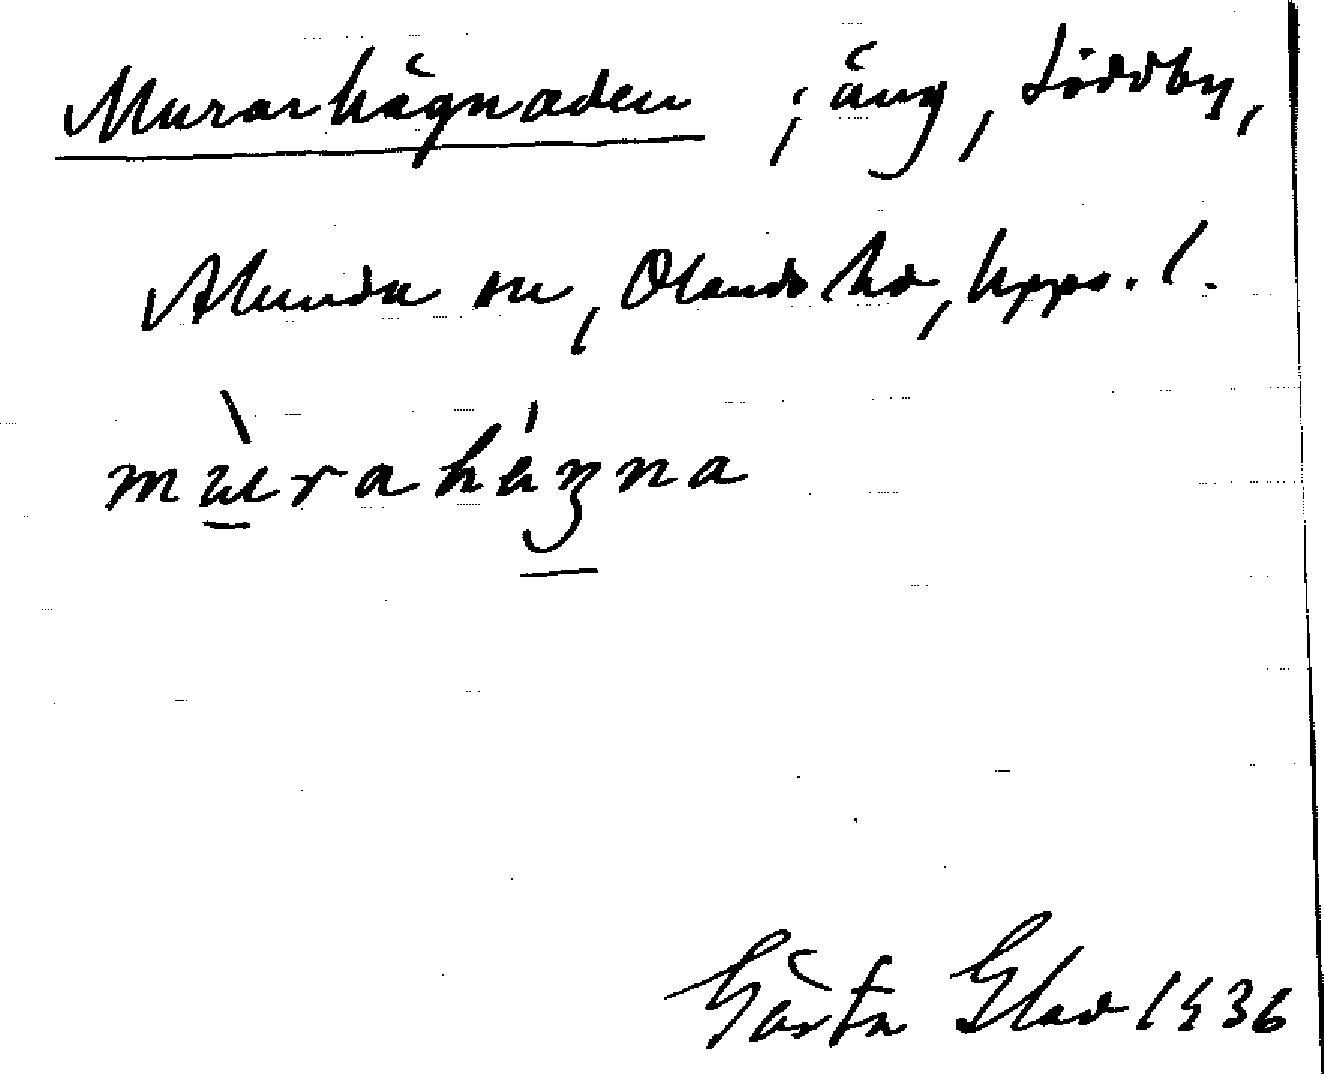 Murarhägnaden ; äng, Löddby,
Alunda sn, Olands hd, Upps. l.
mùrahégna
Gösta Glad 1936